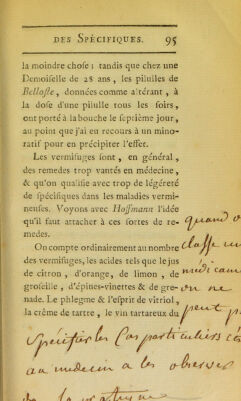 DES SPÉCIFIQUES. 95
la moindre chose ; tandis que chez une
Demoiselle de 28 ans, les pilulles de
Belloste, données comme altérant, à
la dose d'une pilulle tous les soirs,
ont porté à la bouche le septième jour,
au point que j'ai eu recours à un mino-
ratif pour en précipiter l'effet.
Les vermifuges sont, en général,
des remedes trop vantés en médecine,
& qu'on qualifie avec trop de légéreté
de spécifiques dans les maladies vermi-
neuses. Voyons avec Hoffmann l'idée
qu'il faut attacher à ces sortes de re-
medes.
On compte ordinairement au nombre
des vermifuges, les acides tels que le jus
de citron, d'orange, de limon, de
groseille, d'épines-vinettes & de gre-
nade. Le phlegme & l'esprit de vitriol,
la crême de tartre, le vin tartareux du
quand
classe
on ne
peut
Spécifier les Cas particuliers
au medecin a les observer